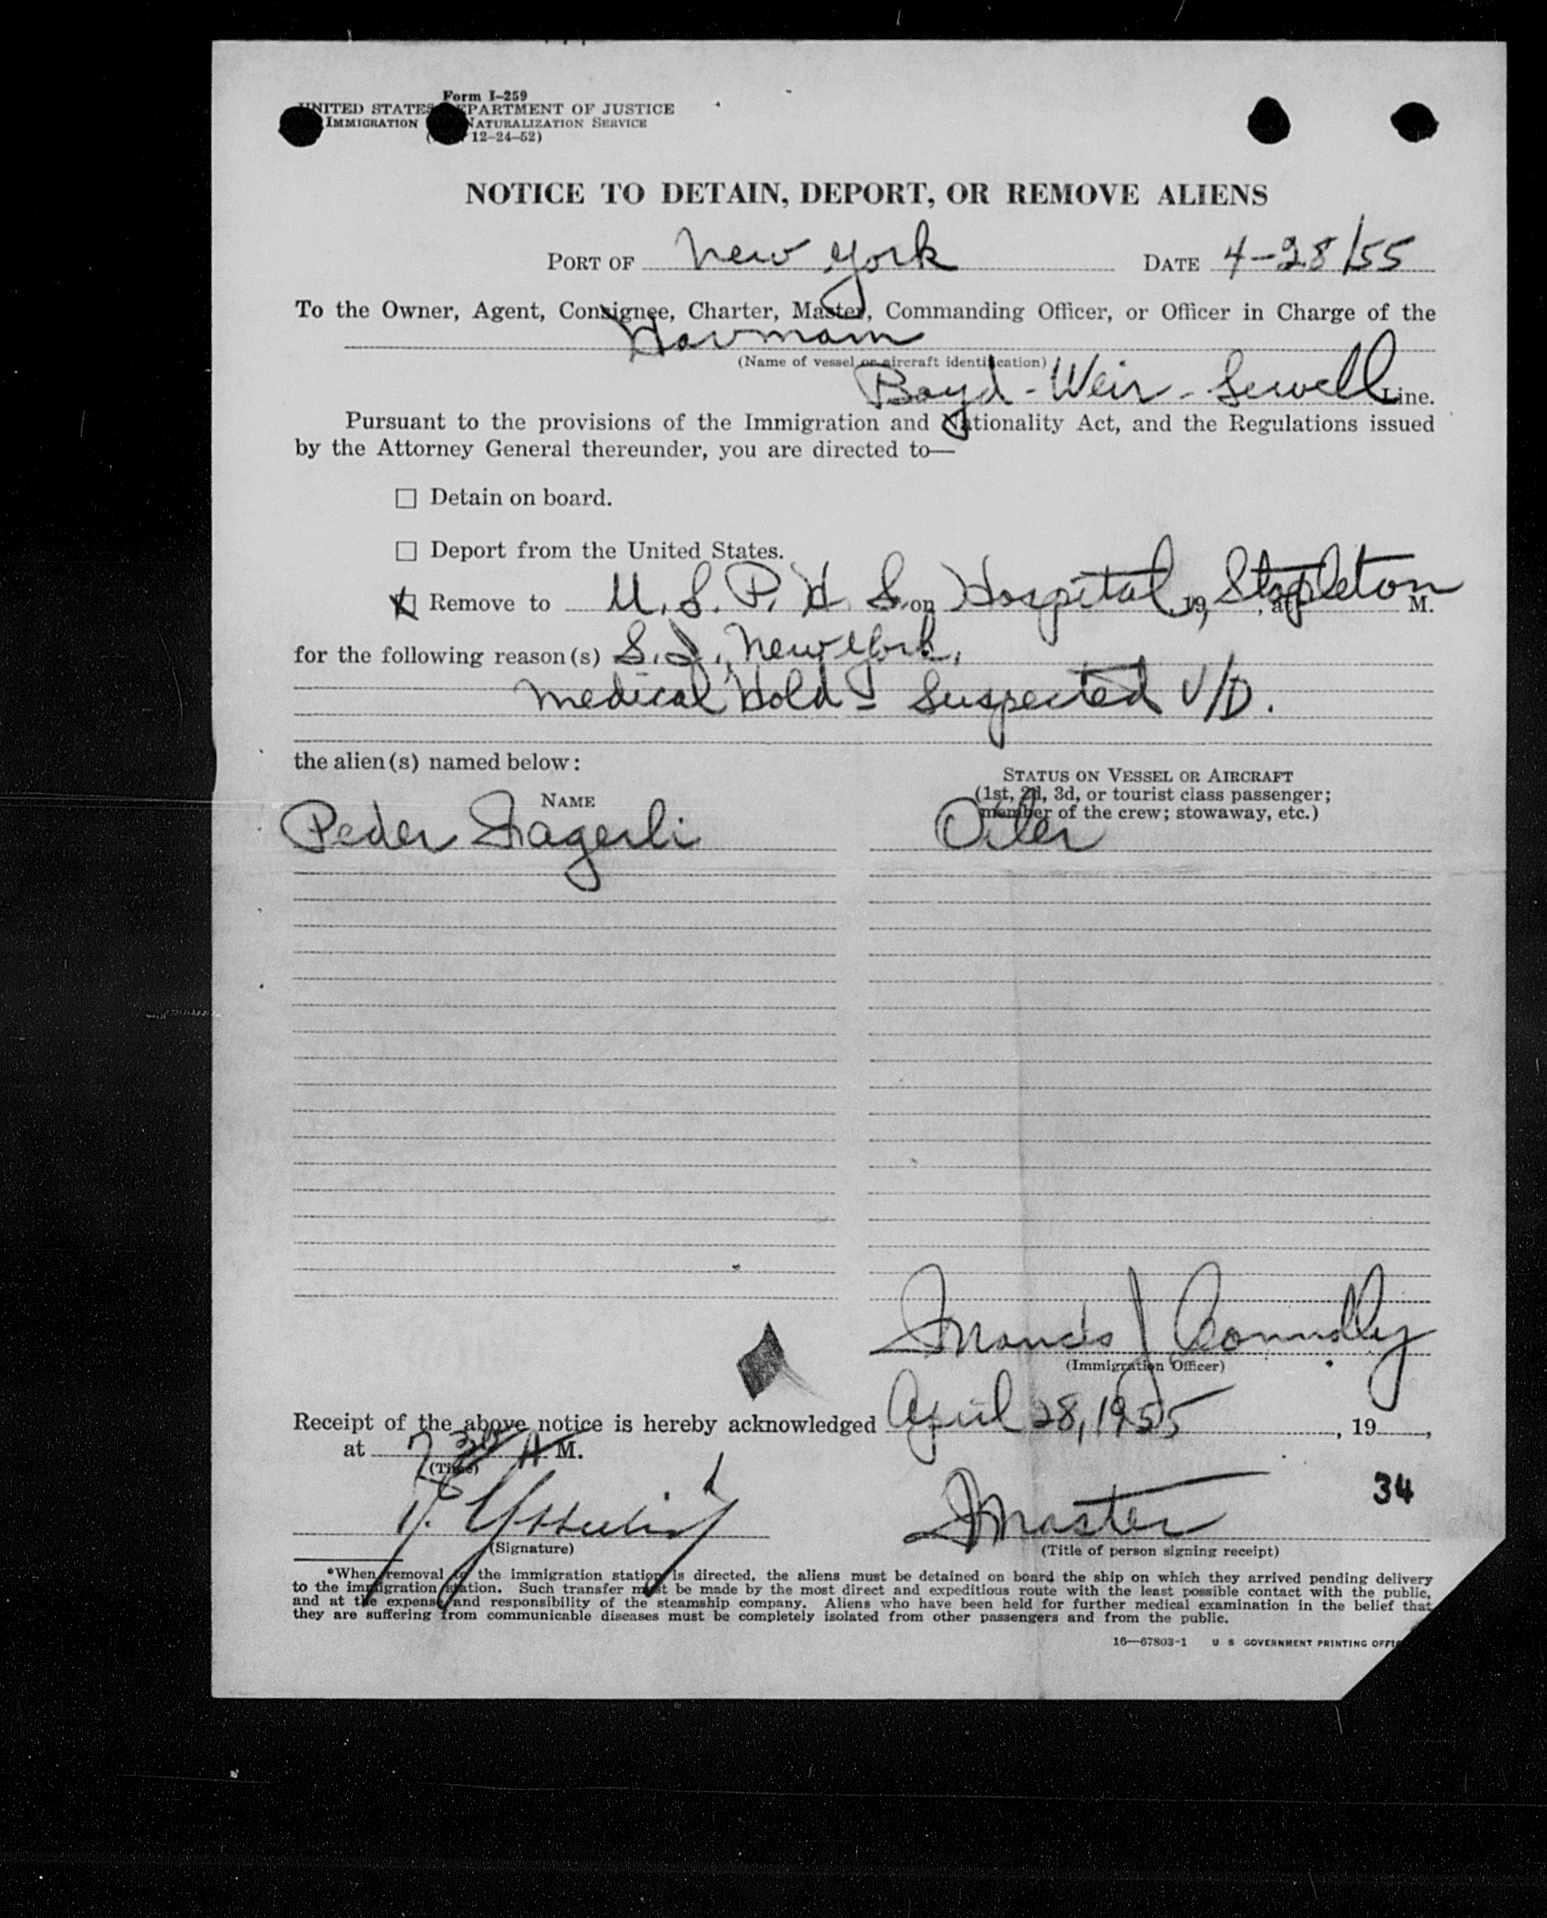 Form I-259
UNITED STATES DEPARTMENT OF JUSTICE
IMMIGRATION NATURALIZATION SERVICE
12-24-52)
NOTICE TO DETAIN, DEPORT, OR REMOVE ALIENS
PORT OF New York DATE 4-28/55
To the Owner, Agent, Consignee, Charter, Master, Commanding Officer, or Officer in Charge of the
Havmann
(Name of vessel or aircraft identification)
Boyd-Weir-Sewell Line.
Pursuant to the provisions of the Immigration and Nationality Act, and the Regulations issued
by the Attorney General thereunder, you are directed to—
☐ Detain on board.
☐ Deport from the United States.
☒ Remove to U.S.P.H.S. on Hospital, 19, Stapleton, at M.
for the following reason(s) S.I., New York.
Medical Hold - Suspected V/D.
the alien(s) named below:
STATUS ON VESSEL OR AIRCRAFT
(1st, 2d, 3d, or tourist class passenger;
member of the crew; stowaway, etc.)
NAME
Peder Fagerli Oiler
Francis J Connolly
(Immigration Officer)
Receipt of the above notice is hereby acknowledged April 28, 1955, 19,
at 7 30 A M.
(Time)
34
Master
(Signature) (Title of person signing receipt)
*When removal to the immigration station is directed, the aliens must be detained on board the ship on which they arrived pending delivery
to the immigration station. Such transfer must be made by the most direct and expeditious route with the least possible contact with the public,
and at the expense and responsibility of the steamship company. Aliens who have been held for further medical examination in the belief that
they are suffering from communicable diseases must be completely isolated from other passengers and from the public.
16—67803-1 U S GOVERNMENT PRINTING OFFIC